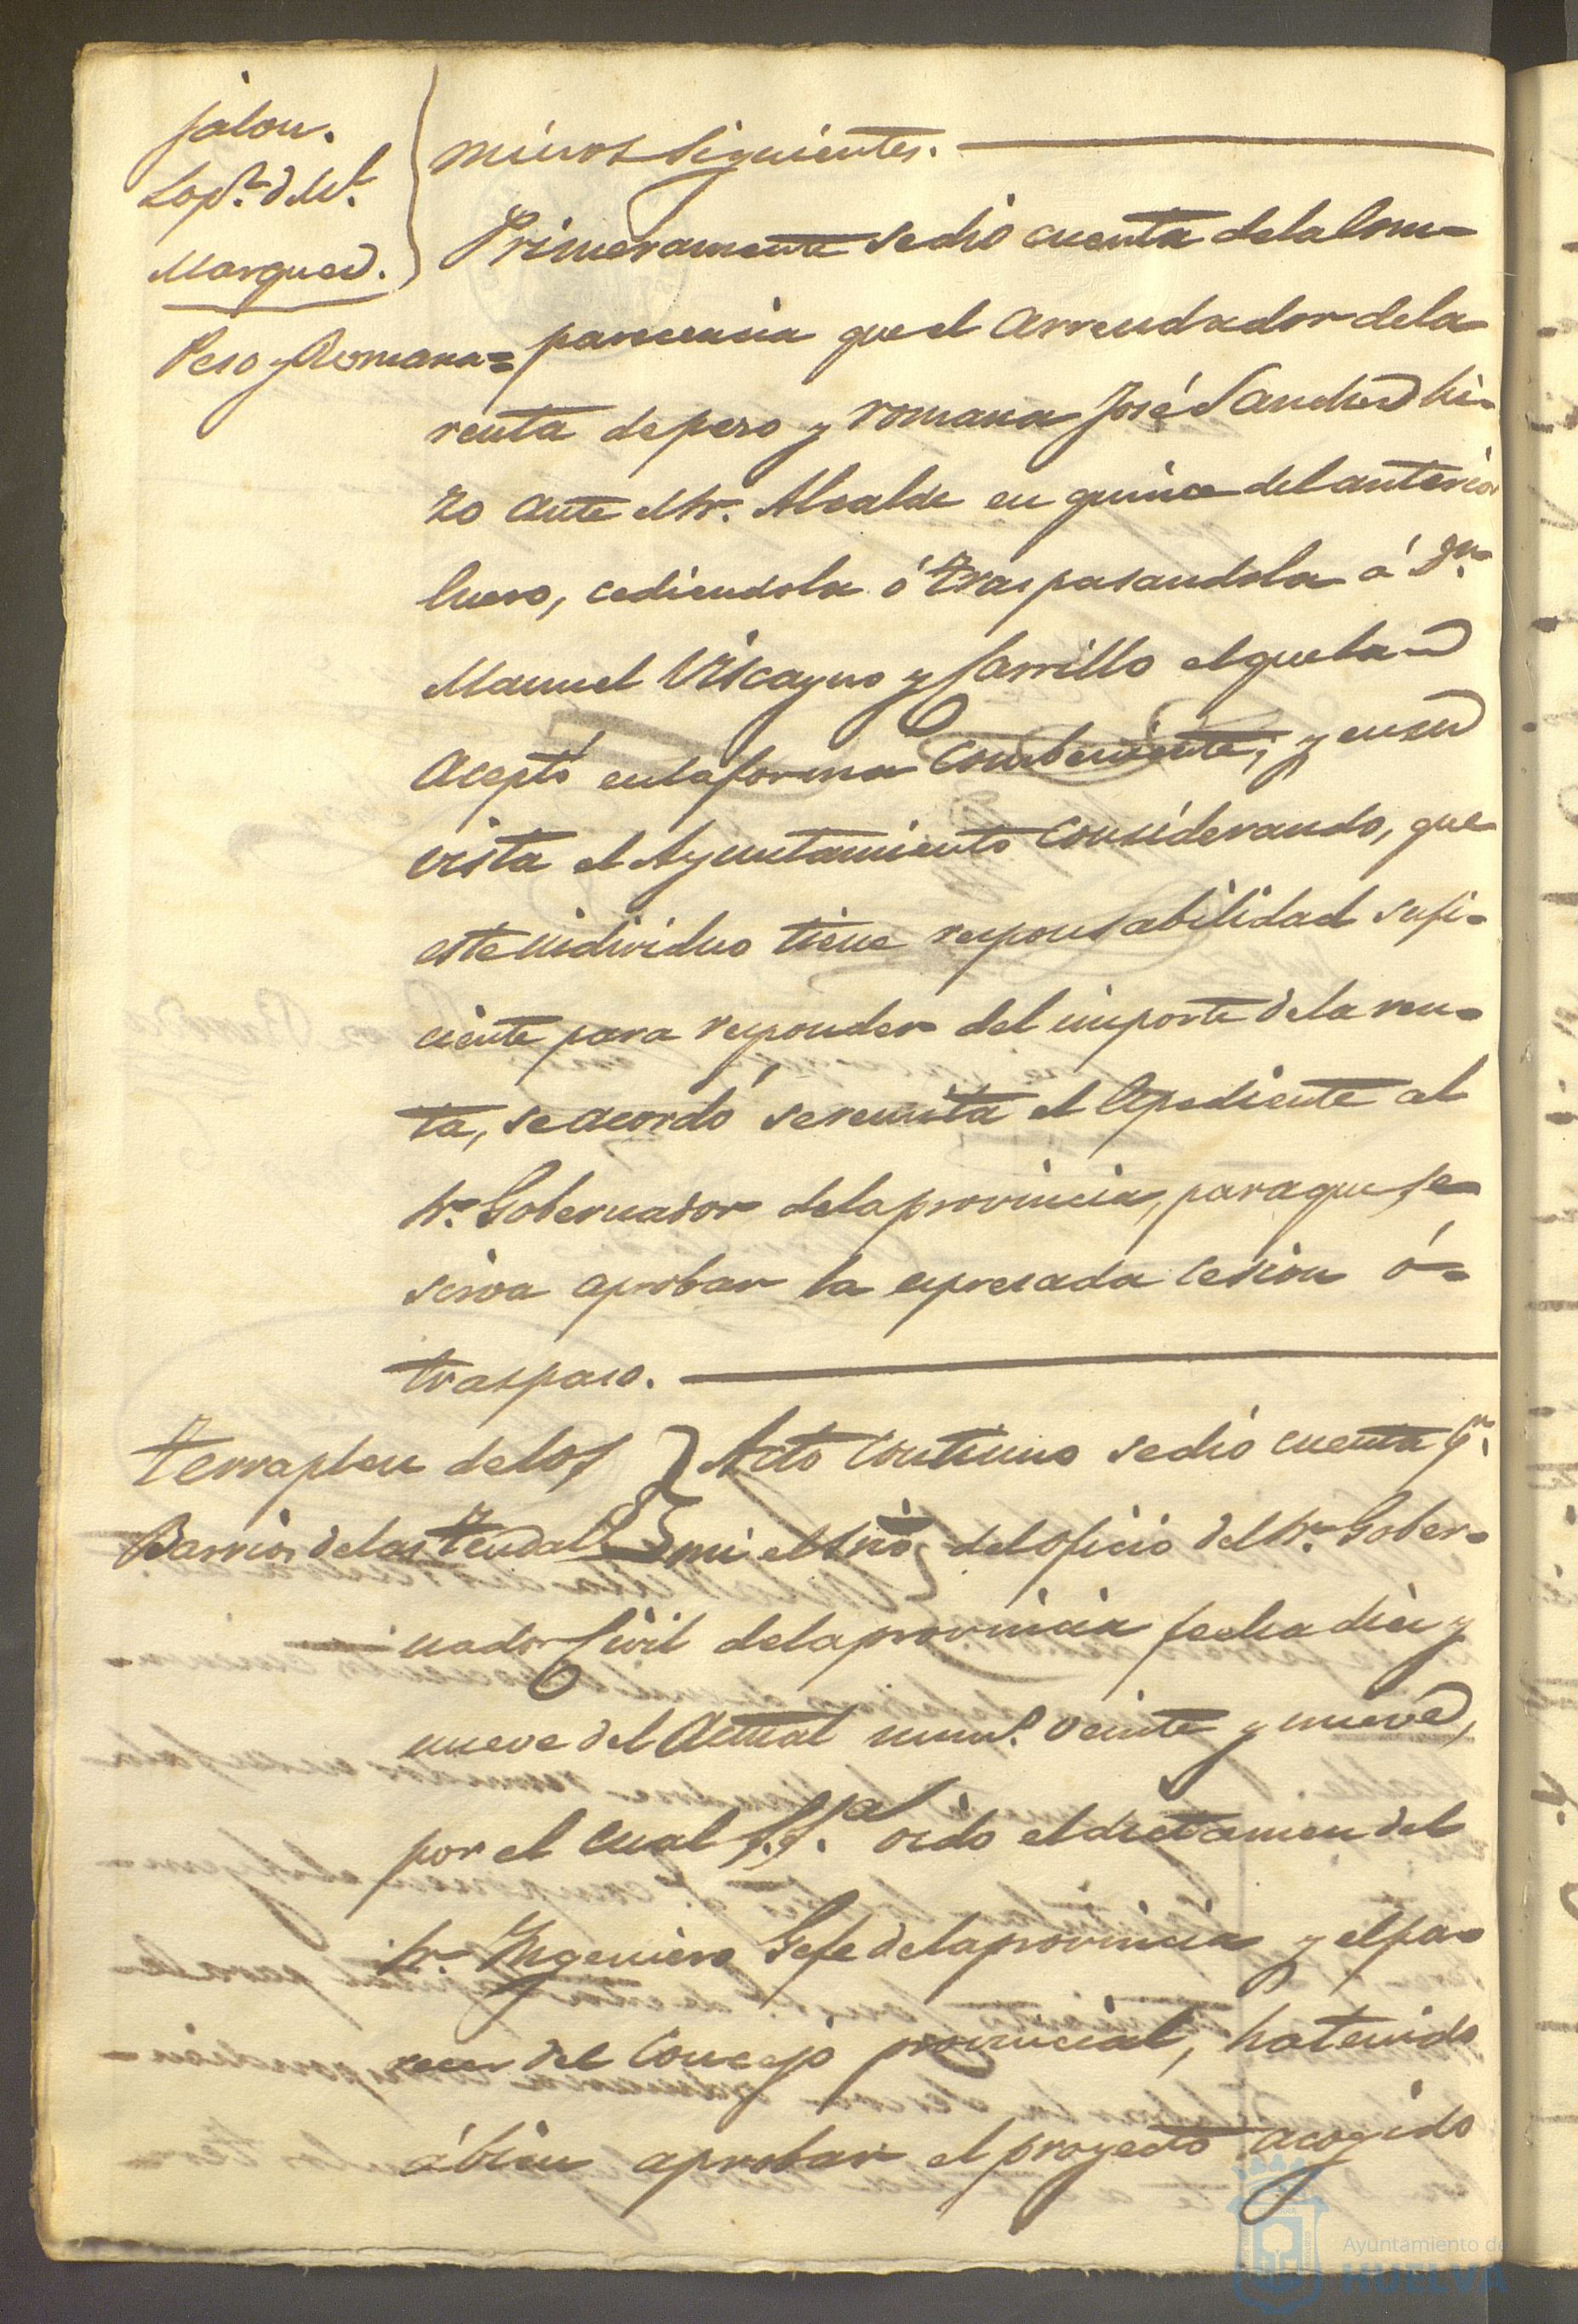 Jalon.
Lop.z d M.l
Marquez.
Peso y Romana=
minos siguientes.
Primeramente se dio cuenta de la Com=
parecencia que el arrendador de la
renta de peso y romana José Sanchez hi=
zo ante el Sr. Alcalde en quince del anterior
Enero, cediendola ó traspasandola á Dn.
Manuel Viscayno y Carrillo el que la
aceptó en la forma combeniente; y en su
vista el Ayuntamiento considerando, que
este individuo tiene responsabilidad sufi=
ciente para responder del importe de la ren=
ta, se acordó se remita el espediente al
Sr. Gobernador de la provincia, para que se
sirva aprobar la espresada cesion ó=
traspaso.
Terraplen de los
Barrios de las Tendal.s
Acto continuo se dió cuenta p.r
mi el Srio del oficio del Sr. Gober=
nador Civil de la provincia fecha diez y
nueve del actual num.o veinte y nueve,
por el cual S.S.a oido el dictamen del
Sr. Ingeniero Gefe de la provincia y el pa=
recer del Concejo provincial, ha tenido
ábien aprobar el proyecto acogido
Ayuntamiento de
HUELVA